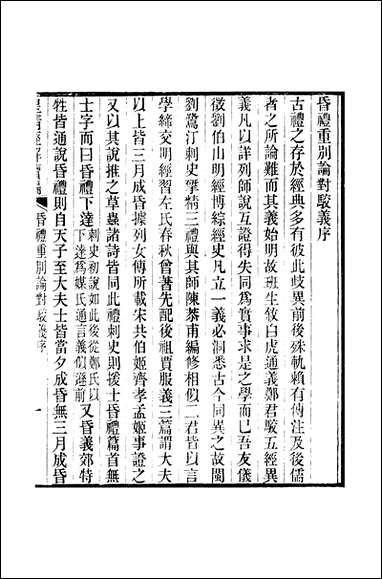 昏禮重別論對駁義序
古禮之存於經典多有彼此歧異前後殊軌賴有傳注及後儒
者之所論難而其義始明故班生攸白虎通義鄭君駁五經異
義凡以詳列師說互證得失同爲實事求是之學而已吾友儀
徵劉伯山明經博綜經史凡立一義必洞悉古今同異之故閩
劉鷺汀刺史擘精三禮與其師陳恭甫編修相似二君皆以言
學締交明經習左氏春秋曾著先配後祖賈服義三篇謂大夫
以上皆三月成昏據列女傳所載宋共伯姬齊孝孟姬事證之
又以其說推之草蟲諸詩皆同此禮刺史則援士昏禮篇首無
士字而曰昏禮下達刺史初說如此後從鄭氏以下達爲媒氏通言義似遜前又昏義郊特
牲皆通說昏禮則自天子至大夫士皆當夕成昏無三月成昏
昏禮重別論對駁義序
一